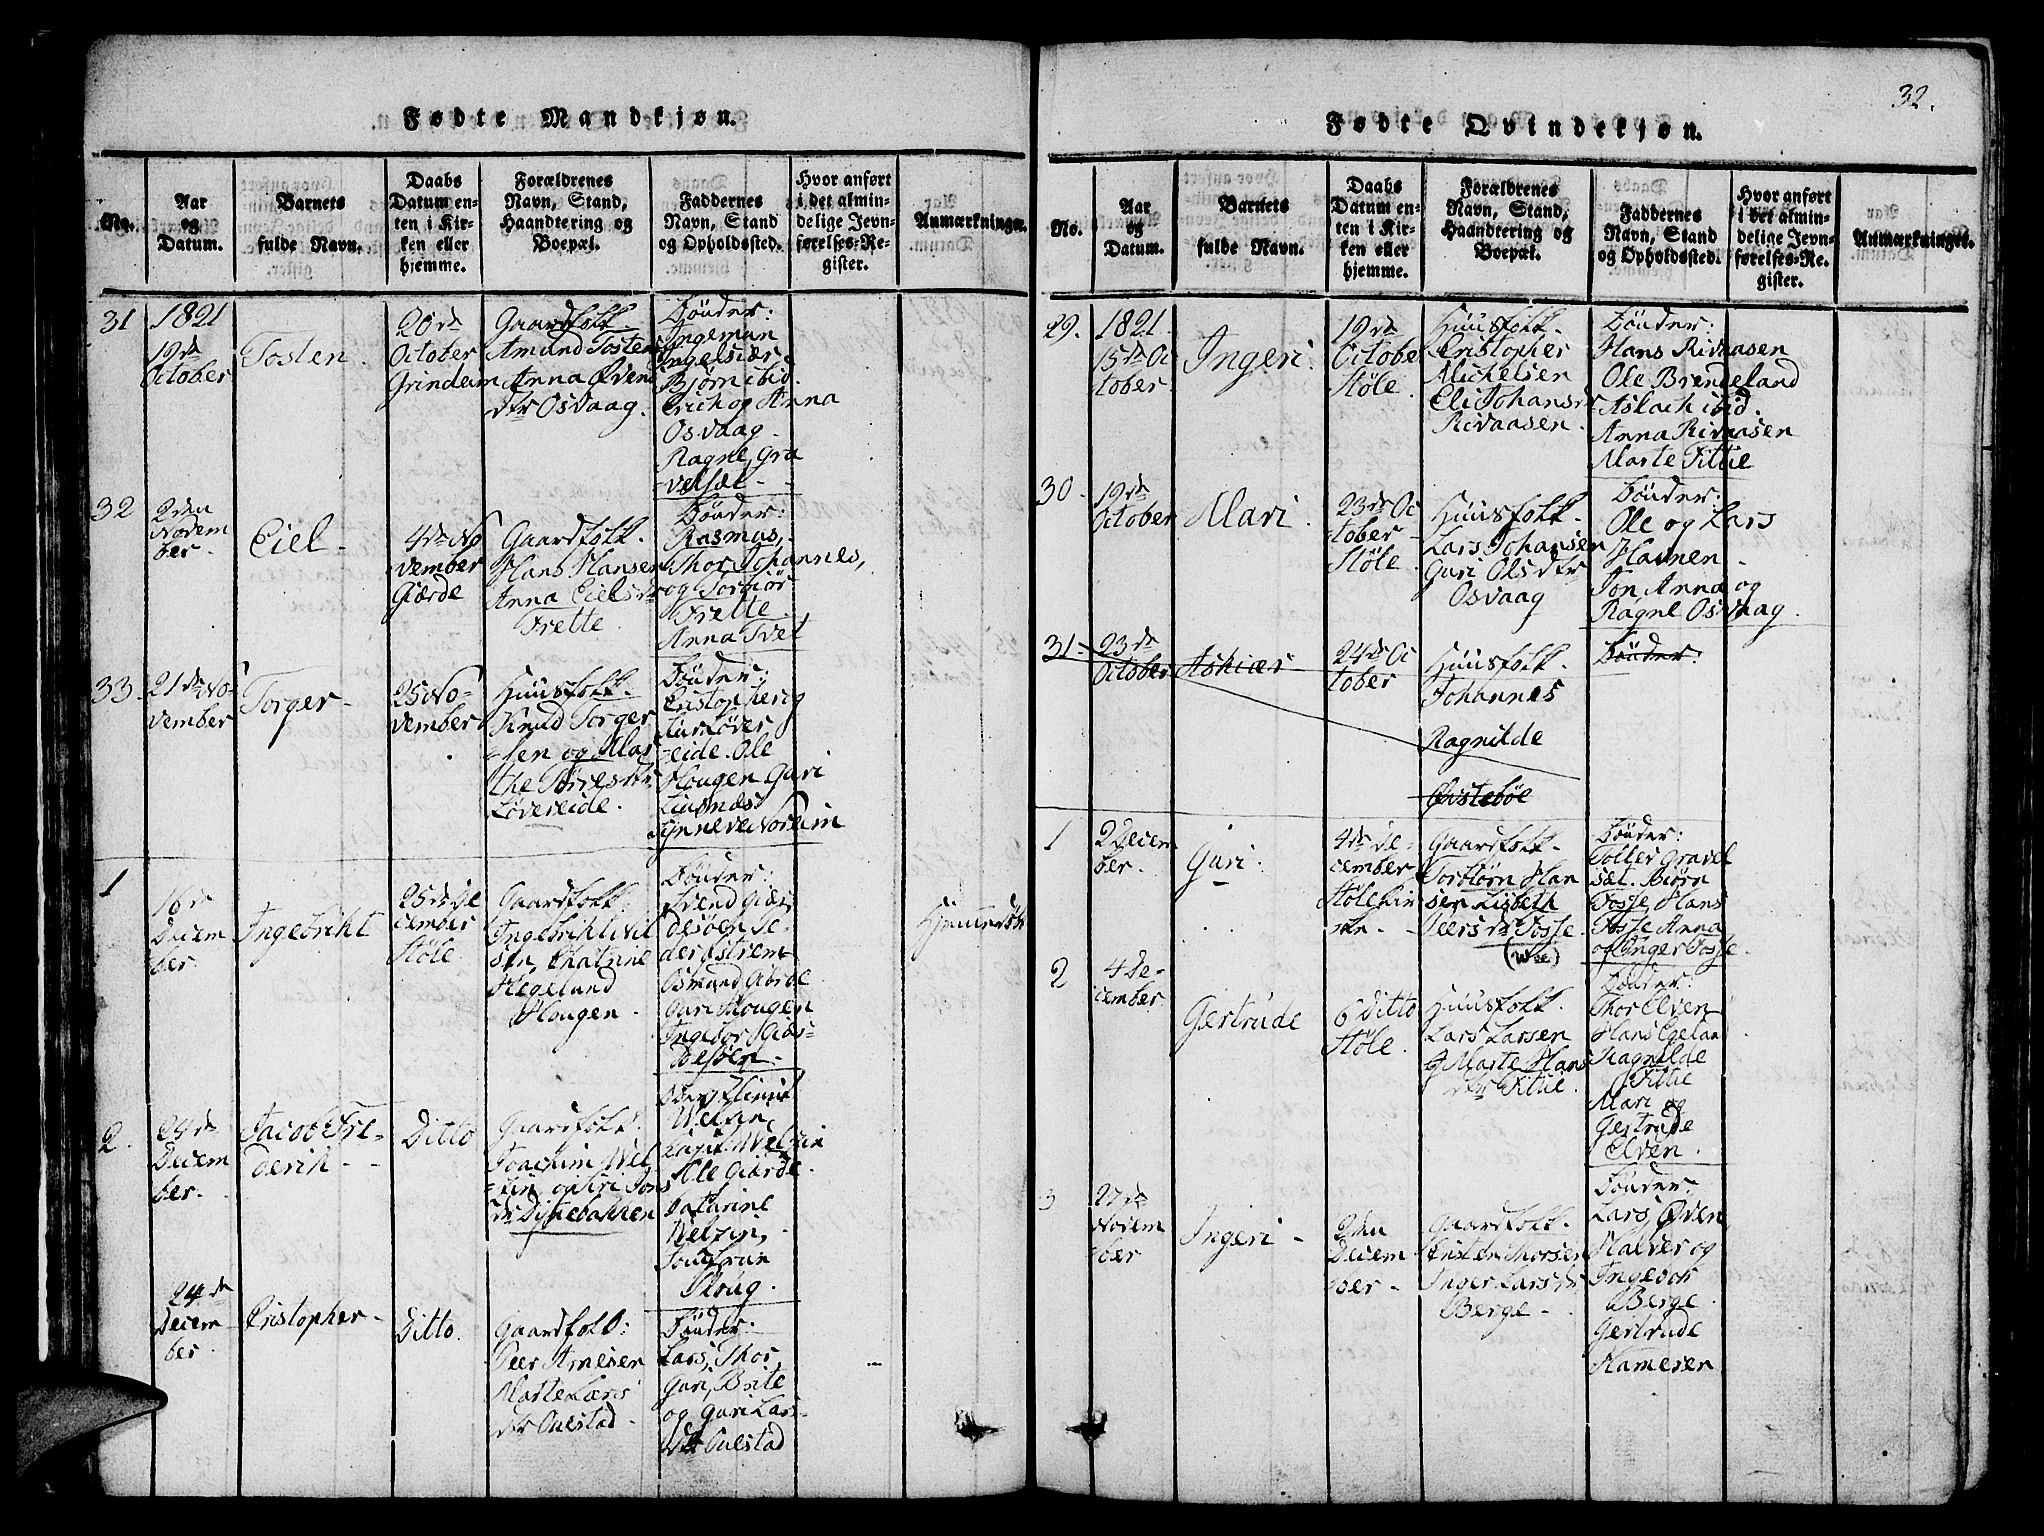 Fødte Mandkjøn.
No.
Aar
og
Datum.
Barnets
fulde Navn.
Daabs
Datum en-
ten i Kir-
ken eller
hjemme.
Forældrenes
Navn, Stand,
Haandtering og
Boepæl.
Faddernes
Navn, Stand
og Opholdssted.
Hvor anført
i det almin-
delige Jevn-
førelses-Re-
gister.
Anmærkninger.
31
1821
19de
October
Tosten.
20de
October
Grindem
Gaardfolk
Amund Tosten
Anna Øvens
dtr Osvaag.
Bönder:
Ingeman
Ingelsiær
Bjørn ibid.
Erich og Anna
Osvaag.
Ragne, Gra
velsæt
32
2den
Novem
ber.
Eiel.
4de No
vember
Giærde
Gaardfolk.
Hans Hansen
Anna Eielsdr
Frette.
Bönder:
Rasmus,
Thor Johannes,
og Torbiør
Frette.
Anna Tvet
33.
21de No-
vember
Torger
25 No-
vember
Huusfolk.
Knud Torger
sen og Mar
the Tørresdtr
Løvereide.
Bönder:
Cristopher og
Lars Løver
eide. Ole
Hougen Guri
Liusnæs
Synneve Noreim
1
16de
Decem
ber.
Ingebriht
25de De
cember
Støle
Gaardfolk:
Ingebrikt Nil
sen, Chatrine
Hegelund
Hougen.
Bönder:
Svend Giær
desøen Pe-
der Østrem
Osmund Gierde
Guri Hougen
Ingebor Giær-
desøen.
2.
24de
Decem
ber.
Jacob Fre-
derik
Ditto
Gaardfolk:
Joachim Wel
zin og Siri Jons
dr Dystebakken
Welzin,
Capit. Welzin
Ole Giærde
Catarine
Welzin,
Jomfrue
Krog.
24de
Decem
ber.
Cristopher
Ditto.
Gaardfolk:
Peer Arnesen
Marte Lars
dtr Oulstad.
Bönder:
Lars, Thor,
Guri, Brite
og Guri Lars-
dtr Oulstad
32.
Fødte Qvindekjøn.
No.
Aar
og
Datum.
Barnets
fulde Navn.
Daabs
Datum en-
ten i Kir-
ken eller
hjemme.
Forældrenes
Navn, Stand,
Haandtering og
Boepæl.
Faddernes
Navn, Stand
og Opholdssted.
Hvor anført
i det almin-
delige Jevn-
førelses-Re-
gister.
Anmærkninger.
29.
1821.
15de Oc
tober.
Ingeri.
19de
October
Støle.
Huusfolk.
Cristopher
Michelsen
Eli Johansdr
Rivaasen.
Bönder:
Hans Rivaasen
Ole Brendeland
Aslach ibid.
Anna Rivaasen
Marte Fittie
30.
19de
October
Mari.
23de Oc
tober
Støle.
Huusfolk.
Lars Johansen
Guri Olsdtr
Osvaag
Bönder:
Ole og Lars
Havnen
Jon Anna og
Ragne Osvaag.
31
23de
October
Askiær
24de Oc
tober
Huusfolk.
Johannes
Ragnilde
Østebøe
Bönder:
1
2 Decem
ber.
Guri.
4de De-
cember
Støle Kir
ke.
Gaardfolk.
Torbiørn Han
sen Lisbeth
Peersdr Fosse.
(Wee)
Bönder:
Tollef Gravel
sæt. Biørn
Fosse, Hans
Fosse Anna
og Inger Fosse.
2
4 De-
cember
Gertrude
6 Ditto
Støle.
Huusfolk.
Lars Larsen
Marte Hans
dtr Fittie.
Bönder:
Thor Elven
Hans Egelan
Ragnilde
Fittie
Mari og
Gertrude
Elven.
3
27de
Novem
ber
Ingeri
2den
Decem
ber
Gaardfolk.
Cristen Thorsen
Inger Larsdtr
Berge
Bönder:
Lars, Øven
Halver og
Ingebor
Berge.
Gertrude
Kameren